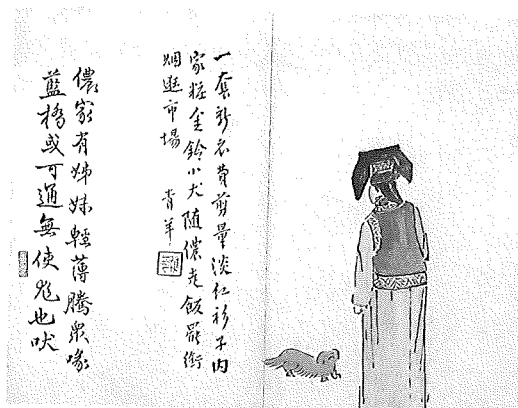 一套新衣費剪量淡紅衫子內
家粧金鈴小犬隨儂走飯罷銜
烟逛市場 青羊
儂家有姊妹輕薄騰眾喙
藍橋或可通無使尨也吠